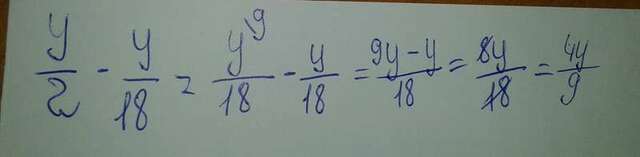 y/2 - y/18 = y\9/18 - y/18 = 9y-y/18 = 8y/18 = 4y/9